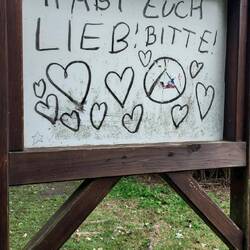 HABT EUCH
LIEB! BITTE!